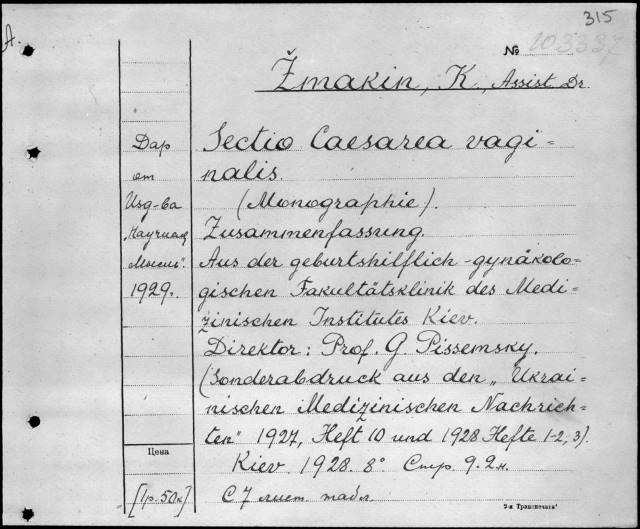 315
А.
№ 103337
Žmakin, K., Assist Dr.
Sectio Caesarea vagi=
nalis.
(Monographie).
Zusammenfassung.
Aus der geburtshilflich-gynäkolo=
gischen Fakultätsklinik des Medi=
zinischen Institutes Kiev.
Direktor: Prof. G. Pissemsky.
(Sonderabdruck aus den „Ukrai=
nischen Medizinischen Nachrich=
ten" 1927, Heft 10 und 1928 Hefte 1-2, 3).
Kiev. 1928. 8° Стр. 9.2н.
С 7 лист. табл.
Дар
от
Изд-ва
„Научная
Мысль".
1929.
Цена
[1р.50к]